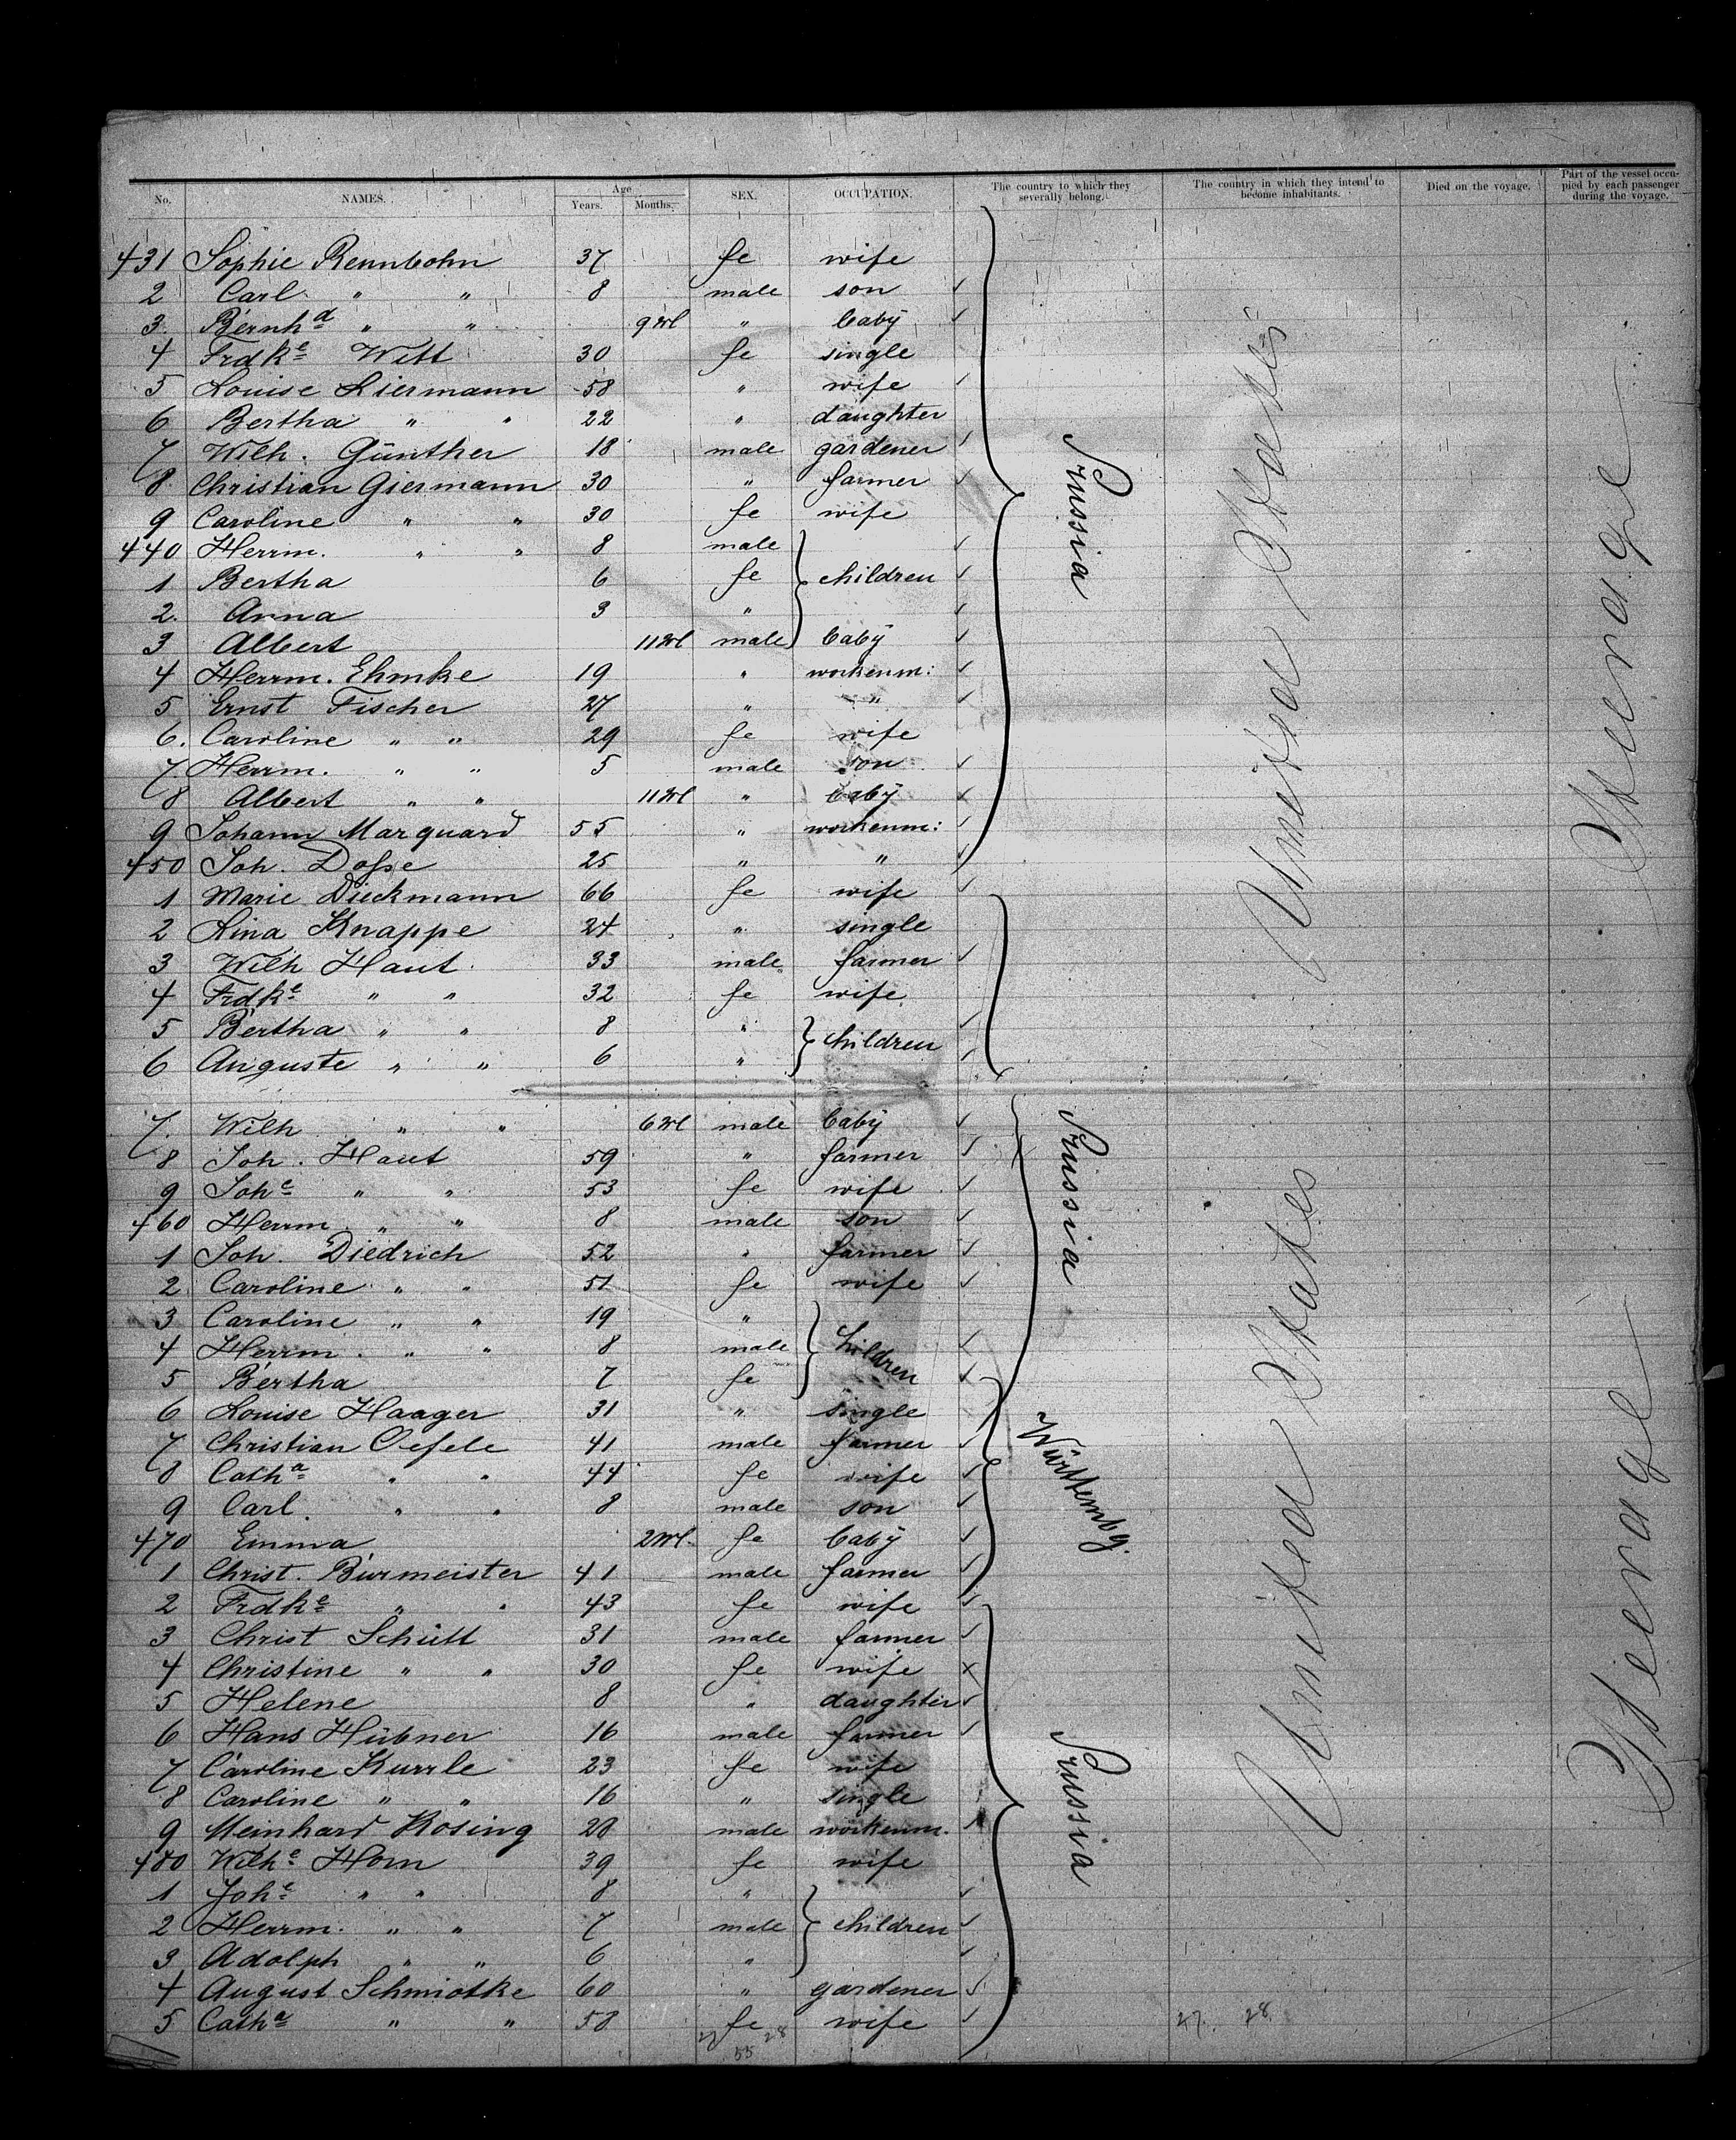 No. NAMES. Age Years. Months. SEX. OCCUPATION. The country to which they severally belong. The country in which they intend to become inhabitants. Died on the voyage. Part of the vessel occupied by each passenger during the voyage.
431 Sophie Rennbohn 37 fe wife
2 Carl " " 8 male son ✓
3. Bernhd " " 9 M " baby ✓
4 Frdke Witt 30 fe single
5 Louise Liermann 58 " wife ✓
6 Bertha " " 22 " daughter
7 Wilh. Günther 18 male gardener ✓
8 Christian Giermann 30 " farmer ✓
9 Caroline " " 30 fe wife
440 Herrm. " " 8 male ✓
1 Bertha 6 fe children ✓
2. Anna 3 " ✓
3 Albert 11 M male baby ✓
4 Herrm. Ehmke 19 " workenm: ✓
5 Ernst Fischer 27 " " ✓
6. Caroline " " 29 fe wife
7 Herrm. " " 5 male son ✓
8 Albert " " 11 M " baby ✓
9 Johann Marquard 55 " workenm: ✓
450 Joh. Dosse 25 " " ✓
Prussia
1 Marie Dieckmann 66 fe wife ✓
2 Lina Knappe 24 " single
3 Wilh Haut 33 male farmer ✓
4 Frdke " " 32 fe wife
5 Bertha " " 8 " children ✓
6 Auguste " " 6 " ✓
United States
Steerage
7. Wilh " " 6 M male baby ✓
8 Joh. Haut 59 " farmer ✓
9 Johe " " 53 fe wife ✓
460 Herrm " " 8 male son ✓
1 Joh. Diedrich 52 " farmer ✓
2 Caroline " " 51 fe wife ✓
3 Caroline " " 19 "
4 Herrm. " " 8 male children ✓
5 Bertha 7 fe ✓
Prussia
6 Louise Haager 31 " single
7 Christian Oefele 41 male farmer ✓
8 Catha " " 44 fe wife ✓
9 Carl. " " 8 male son ✓
470 Emma 2 M. fe baby ✓
Württembg.
1 Christ. Burmeister 41 male farmer ✓
2 Frdke " " 43 fe wife ✓
3 Christ Schütt 31 male farmer ✓
4 Christine " " 30 fe wife x
5 Helene 8 " daughter ✓
6 Hans Hübner 16 male farmer ✓
7 Caroline Kurrle 23 fe wife
8 Caroline " " 16 " single
9 Meinhard Rosing 28 male workenm.
480 Wilhe Horn 39 fe wife
1 Johe " " 8 " ✓
2 Herrm. " " 7 male children ✓
3 Adolph " " 6 " ✓
4 August Schmidtke 60 " gardener ✓
5 Catha " " 58 fe wife ✓
Prussia
United States
Steerage
27 28
55
27. 28.